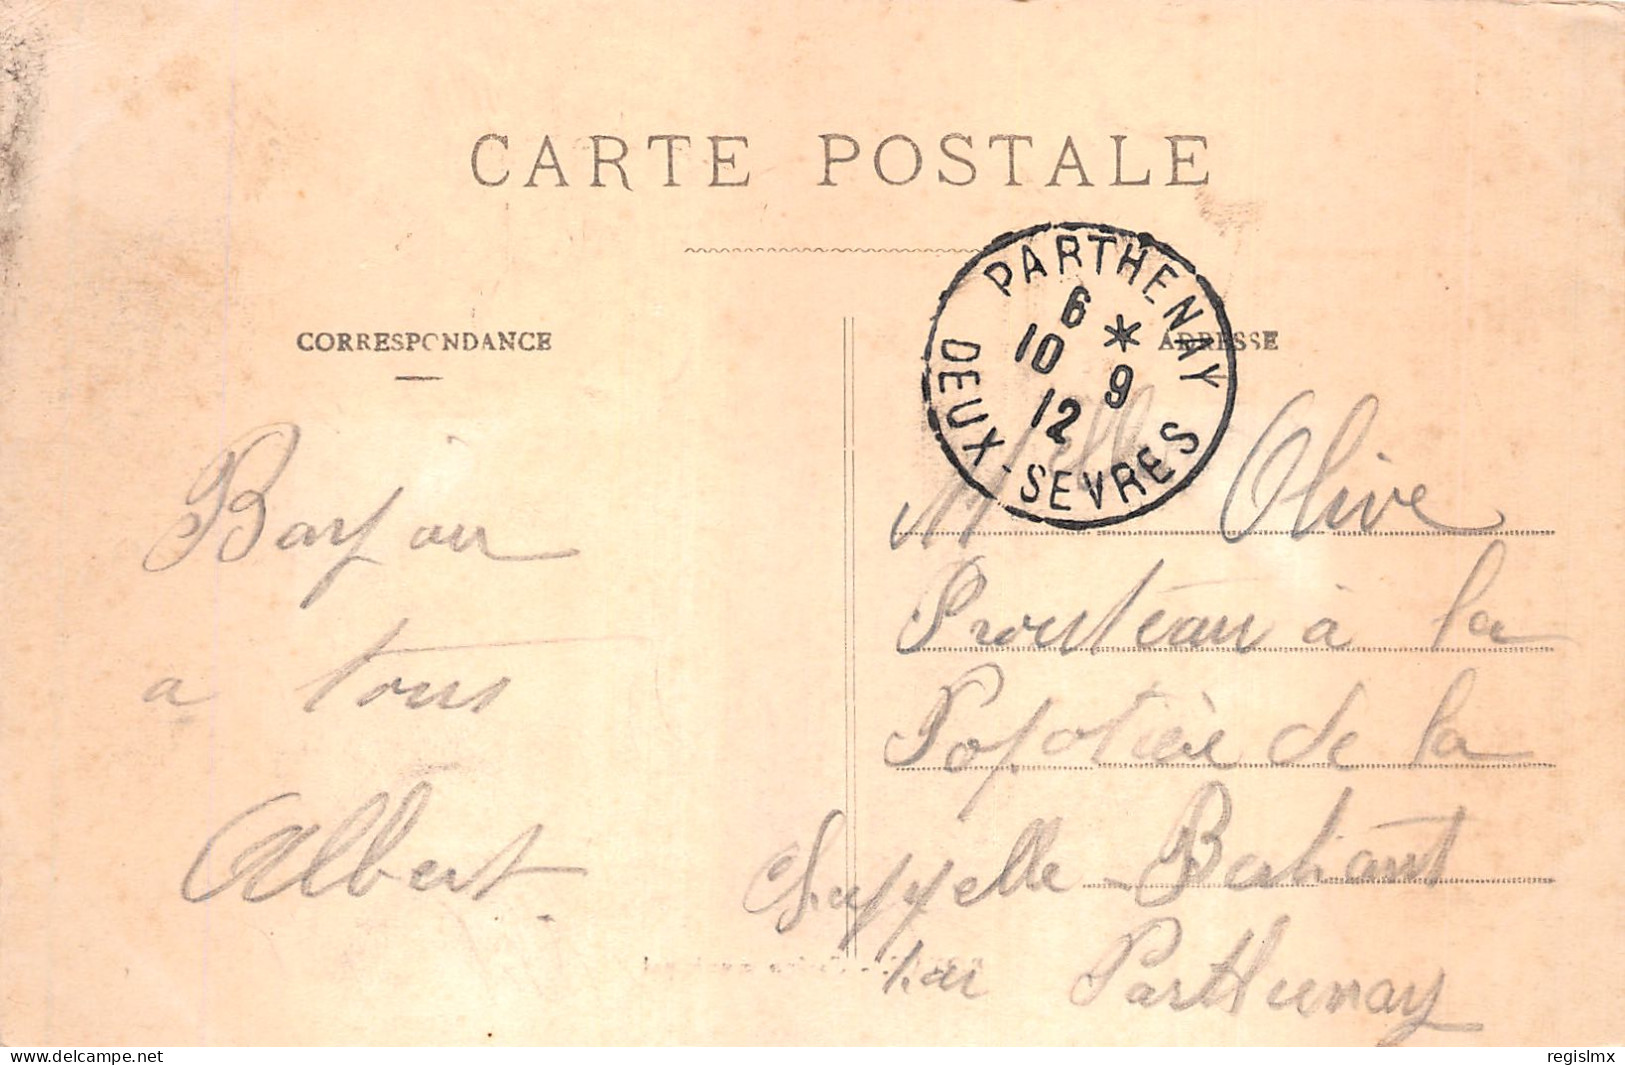 CARTE POSTALE
CORRESPONDANCE
ADRESSE
PARTHENAY
6 *
10 9
12
DEUX-SEVRES
Bonjour
a tous
Albert.
Melle Olive
Prousteau à la
Popotière de la
Chappelle-Bertrant
par Parthenay
regislmx